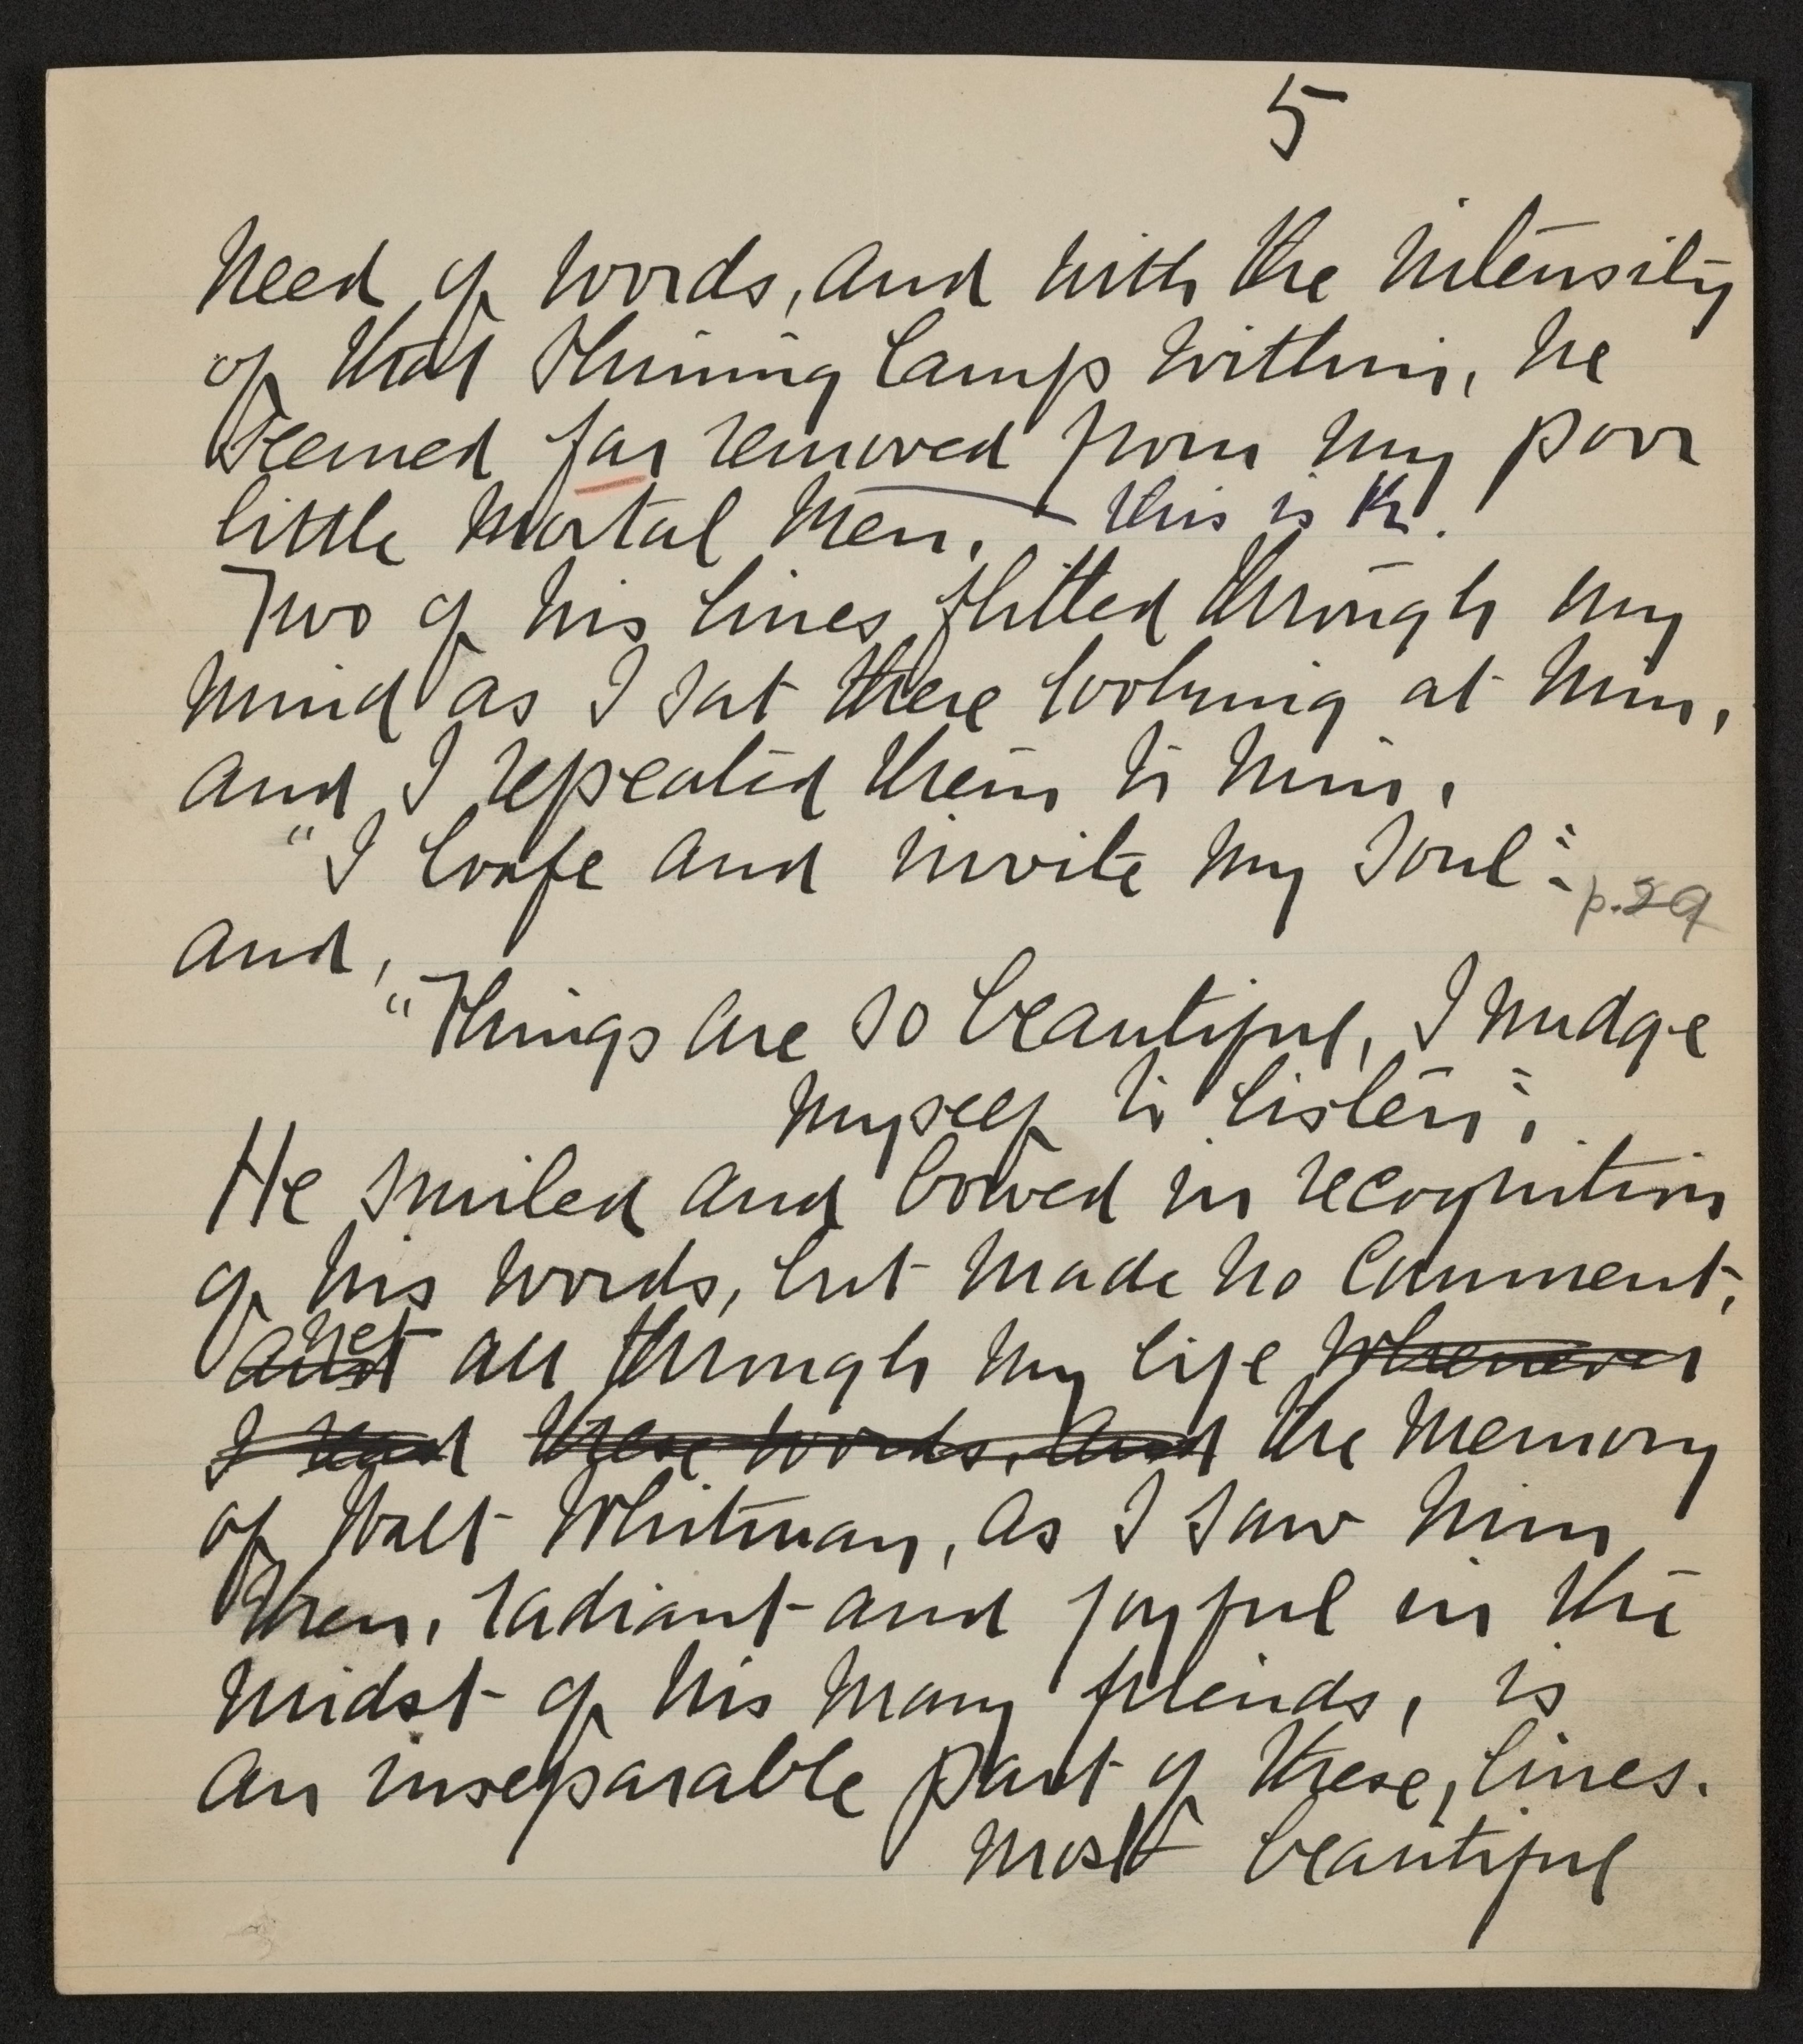 5
need of words, and with the intensity
of that shining lamp within, he
seemed far removed from my poor
little mortal men. this is
Two of his lines flitted through my
mind as I sat there looking at him,
and I repeated them to him.
"I loafe and invite my soul".
p. 29
and,
"Things are so beautiful, I nudge
myself to listen".
He smiled and bowed in recognition
of his words, but made no comment,
yet
and all through my life whenever
I read these words, and the memory
of Walt Whitman, as I saw him
then, radiant and joyful in the
midst of his many friends, is
an inseparable part of these, lines.
most beautiful